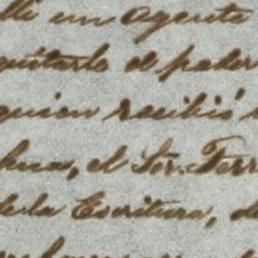 un Agente
quitarle el poder
quien recibió
el Sor. Terr
de la Escritura, de